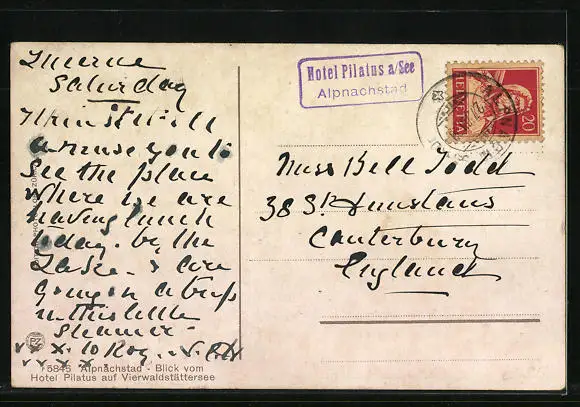 Lucerne
Saturday
I think it will
amuse you to
see the place
where we are
having lunch
today. by the
Lake. & are
going on a trip
in this little
steamer.
x x x. 10 Rog. . V.
x x x x
15845 Alpnachstad - Blick vom
Hotel Pilatus auf Vierwaldstättersee
PZ
Hotel Pilatus a/See
Alpnachstad
HELVETIA
20
Miss Bell Todd
38 St. Dunstans
Canterbury
England